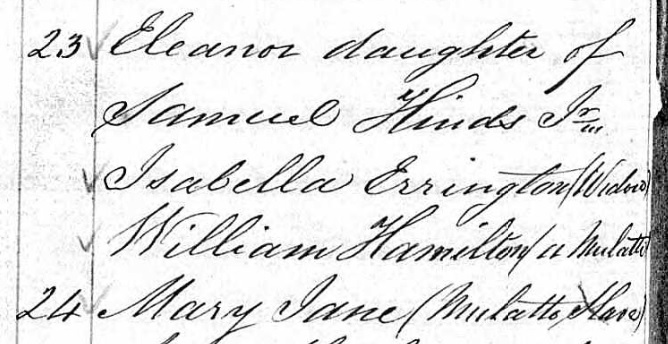 23 Eleanor daughter of
Samuel Hinds Jr.
Isabella Errington (Widow)
William Hamilton (a Mulatto
24 Mary Jane (Mulatto Slave)